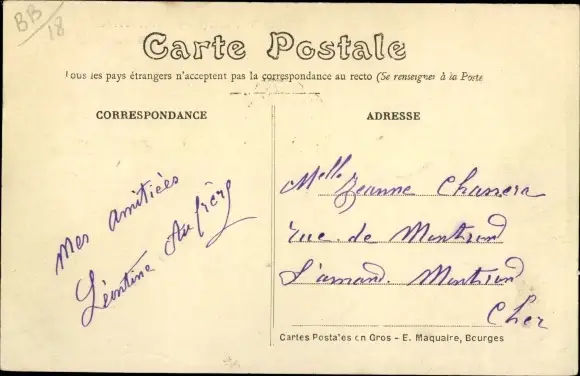 BB
18
Carte Postale
Tous les pays étrangers n'acceptent pas la correspondance au recto (Se renseigner à la Poste
CORRESPONDANCE
ADRESSE
Mes amitiées
Léontine Aufrère
Melle Jeanne
rue de Montrond
St amand. Montrond
Cher
Cartes Postales en Gros - E. Maquaire, Bourges